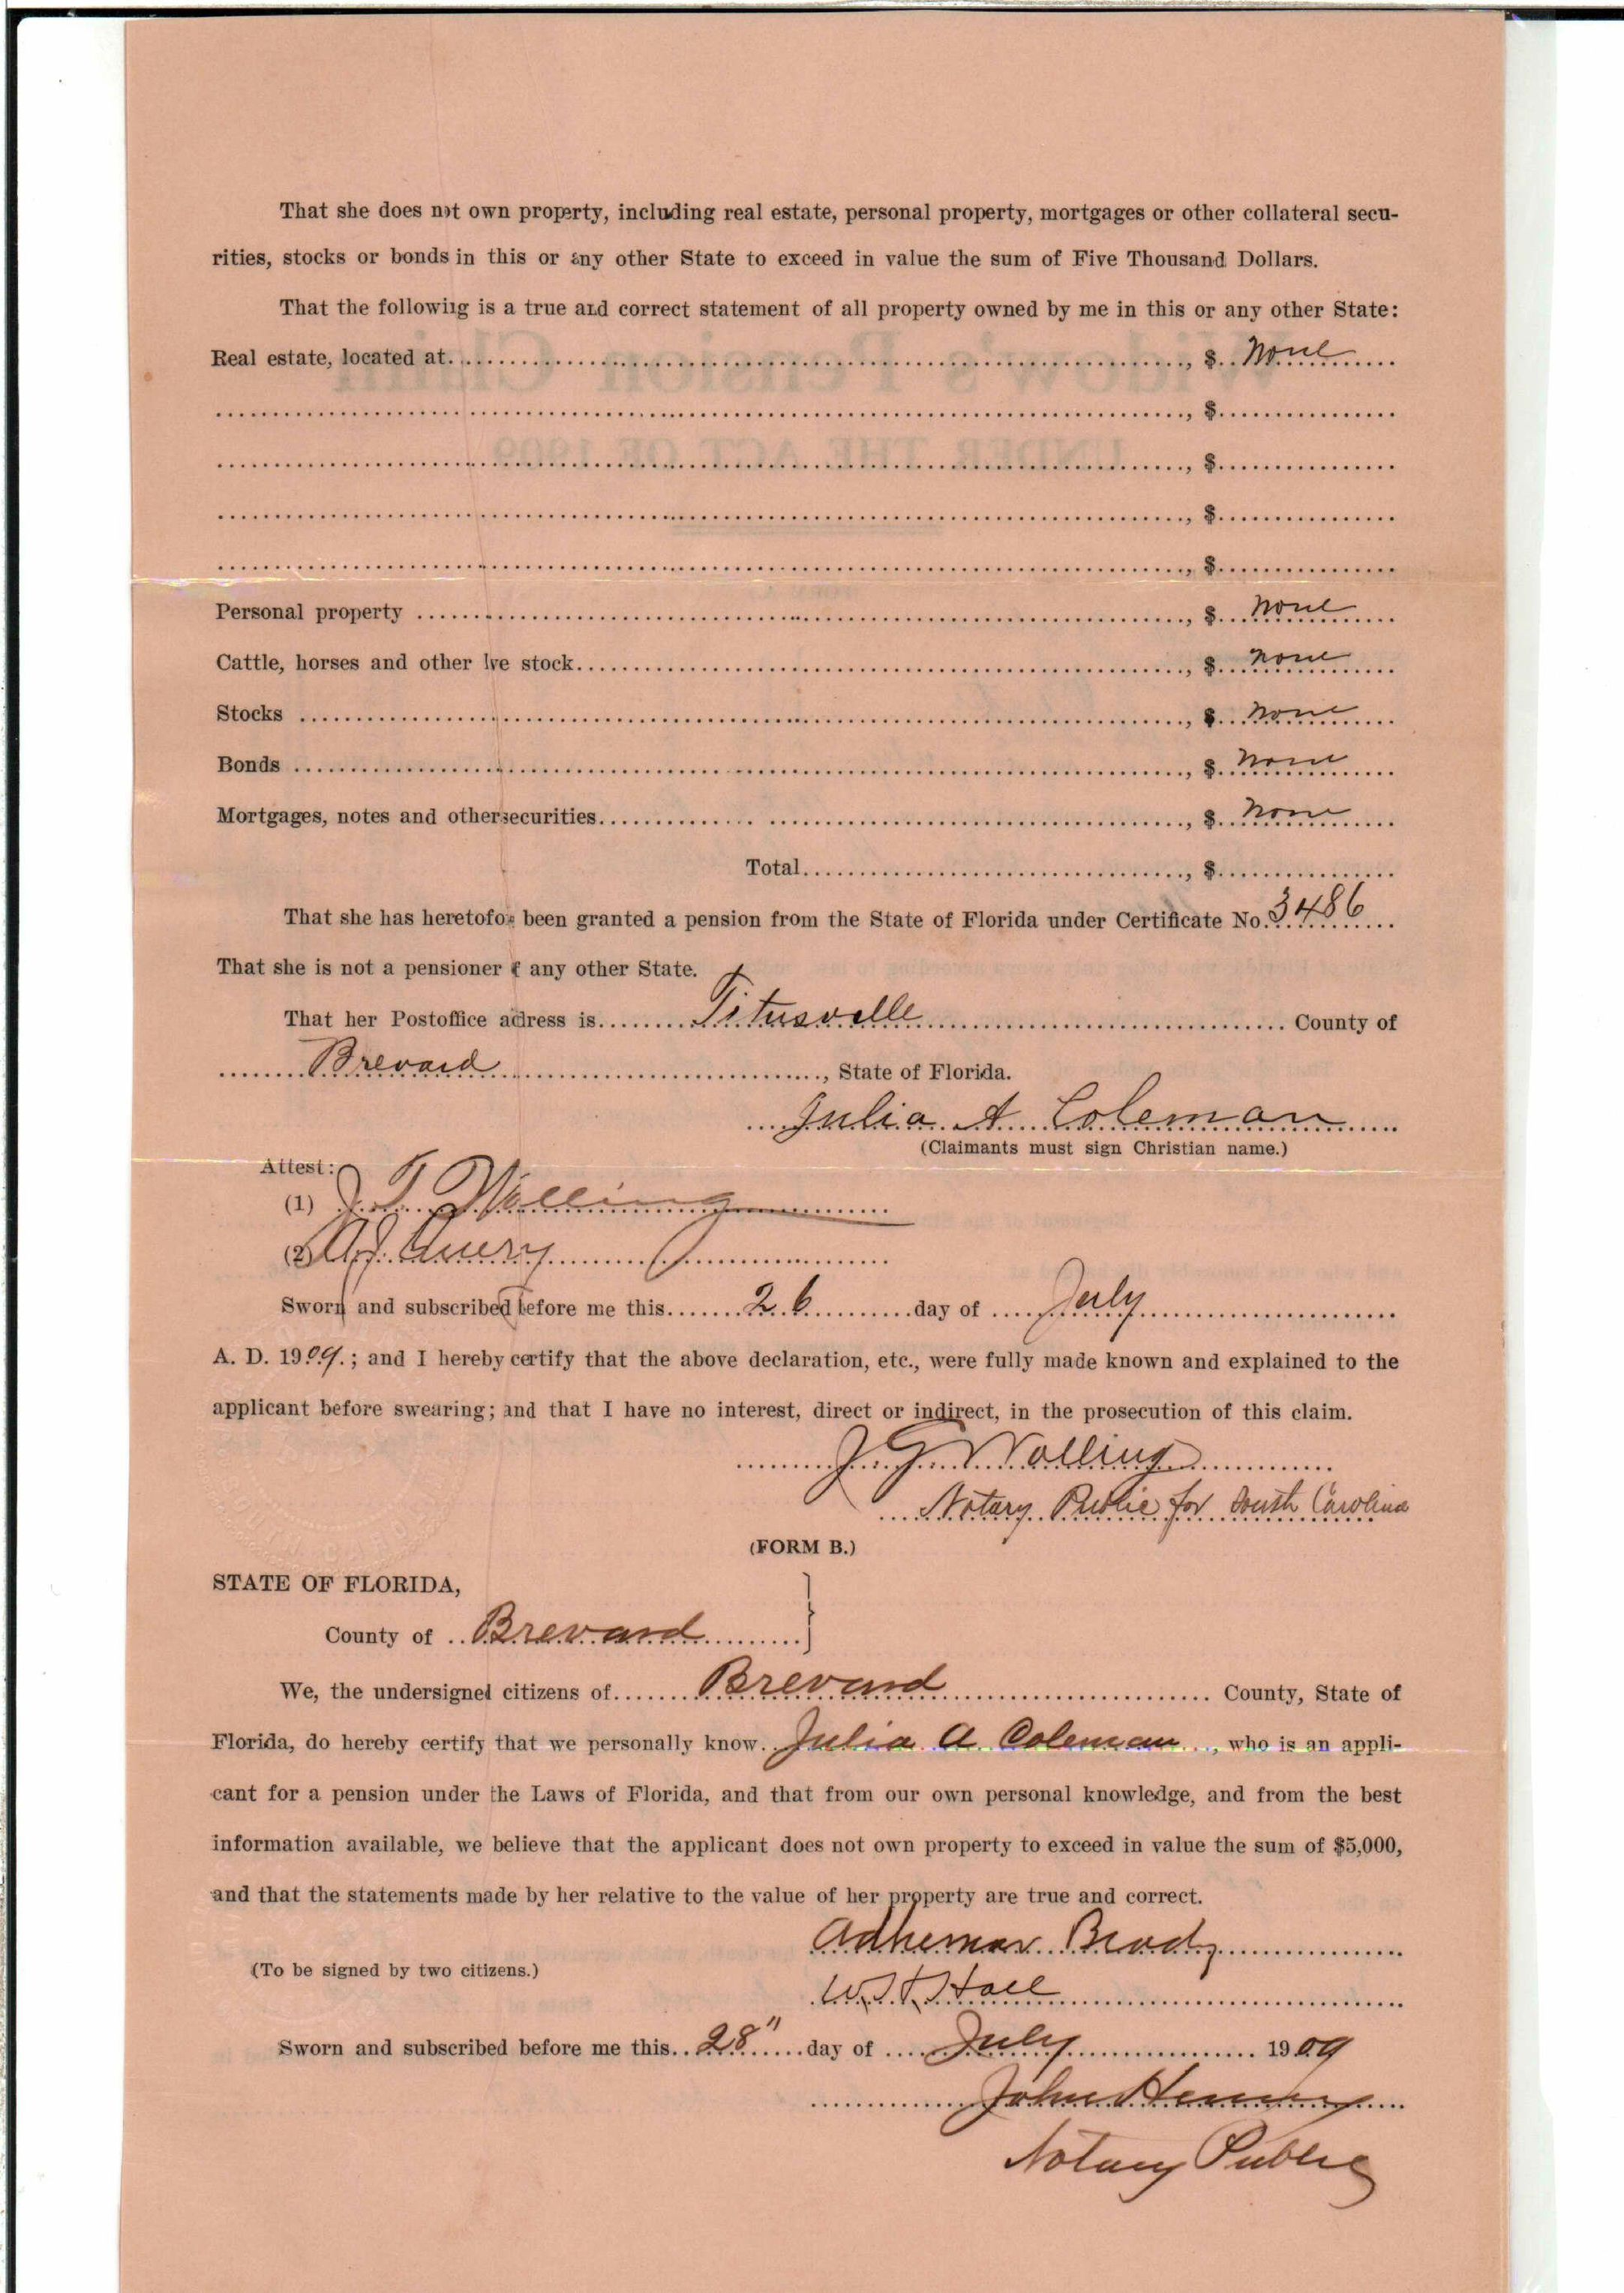 That she does not own property, including real estate, personal property, mortgages or other collateral secu-
rities, stocks or bonds in this or any other State to exceed in value the sum of Five Thousand Dollars.
That the following is a true and correct statement of all property owned by me in this or any other State:
Real estate, located at..., $ None
..., $...
..., $...
..., $...
..., $...
Personal property ..., $ None
Cattle, horses and other live stock..., $ None
Stocks ..., $ None
Bonds ..., $ None
Mortgages, notes and other securities..., $ None
Total..., $...
That she has heretofore been granted a pension from the State of Florida under Certificate No. 3486
That she is not a pensioner of any other State.
That her Postoffice address is... Titusville ... County of
Brevard ..., State of Florida.
Julia A Coleman
(Claimants must sign Christian name.)
Attest:
(1) J. G. Wolling
(2)
Sworn and subscribed before me this... 26 ...day of ... July
A. D. 1909.; and I hereby certify that the above declaration, etc., were fully made known and explained to the
applicant before swearing; and that I have no interest, direct or indirect, in the prosecution of this claim.
J. G. Wolling
Notary Public for South Carolina
(FORM B.)
STATE OF FLORIDA,
County of .. Brevard
We, the undersigned citizens of... Brevard ... County, State of
Florida, do hereby certify that we personally know.. Julia A Coleman .., who is an appli-
cant for a pension under the Laws of Florida, and that from our own personal knowledge, and from the best
information available, we believe that the applicant does not own property to exceed in value the sum of $5,000,
and that the statements made by her relative to the value of her property are true and correct.
Adhemar Brady
(To be signed by two citizens.)
Hall
Sworn and subscribed before me this.. 28" ...day of ... July ... 1909
John Henry
Notary Public